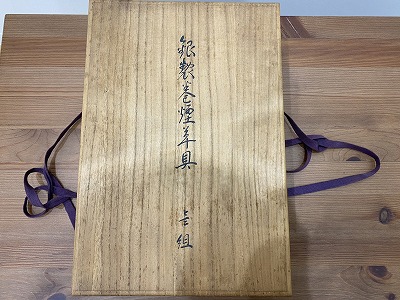 銀製巻煙草具　壱組